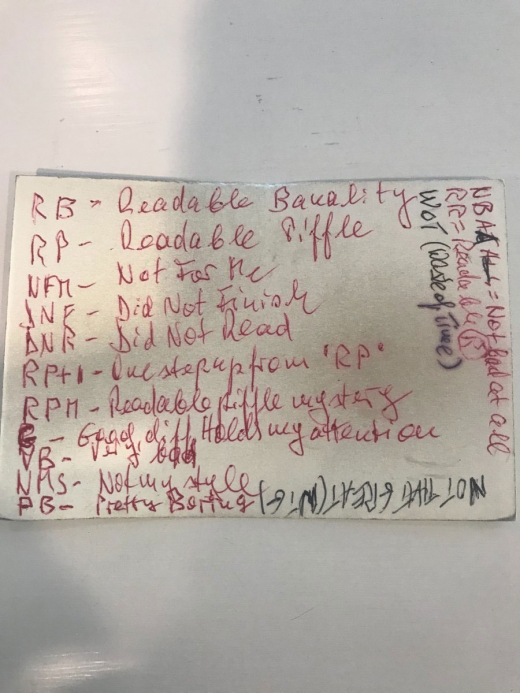 RB - Readable Banality
RP - Readable Piffle
NFM - Not For Me
DNF - Did Not Finish
DNR - Did Not Read
RP+1 - One step up from "RP"
RPM - Readable piffle mystery
G - Good diff Holds my attention
VB - Very bad
NMS - Not my style
PB - Pretty Boring
NOT THAT GREAT (NTG)
WOT (Waste of Time)
RR = Readable
= Not bad at all